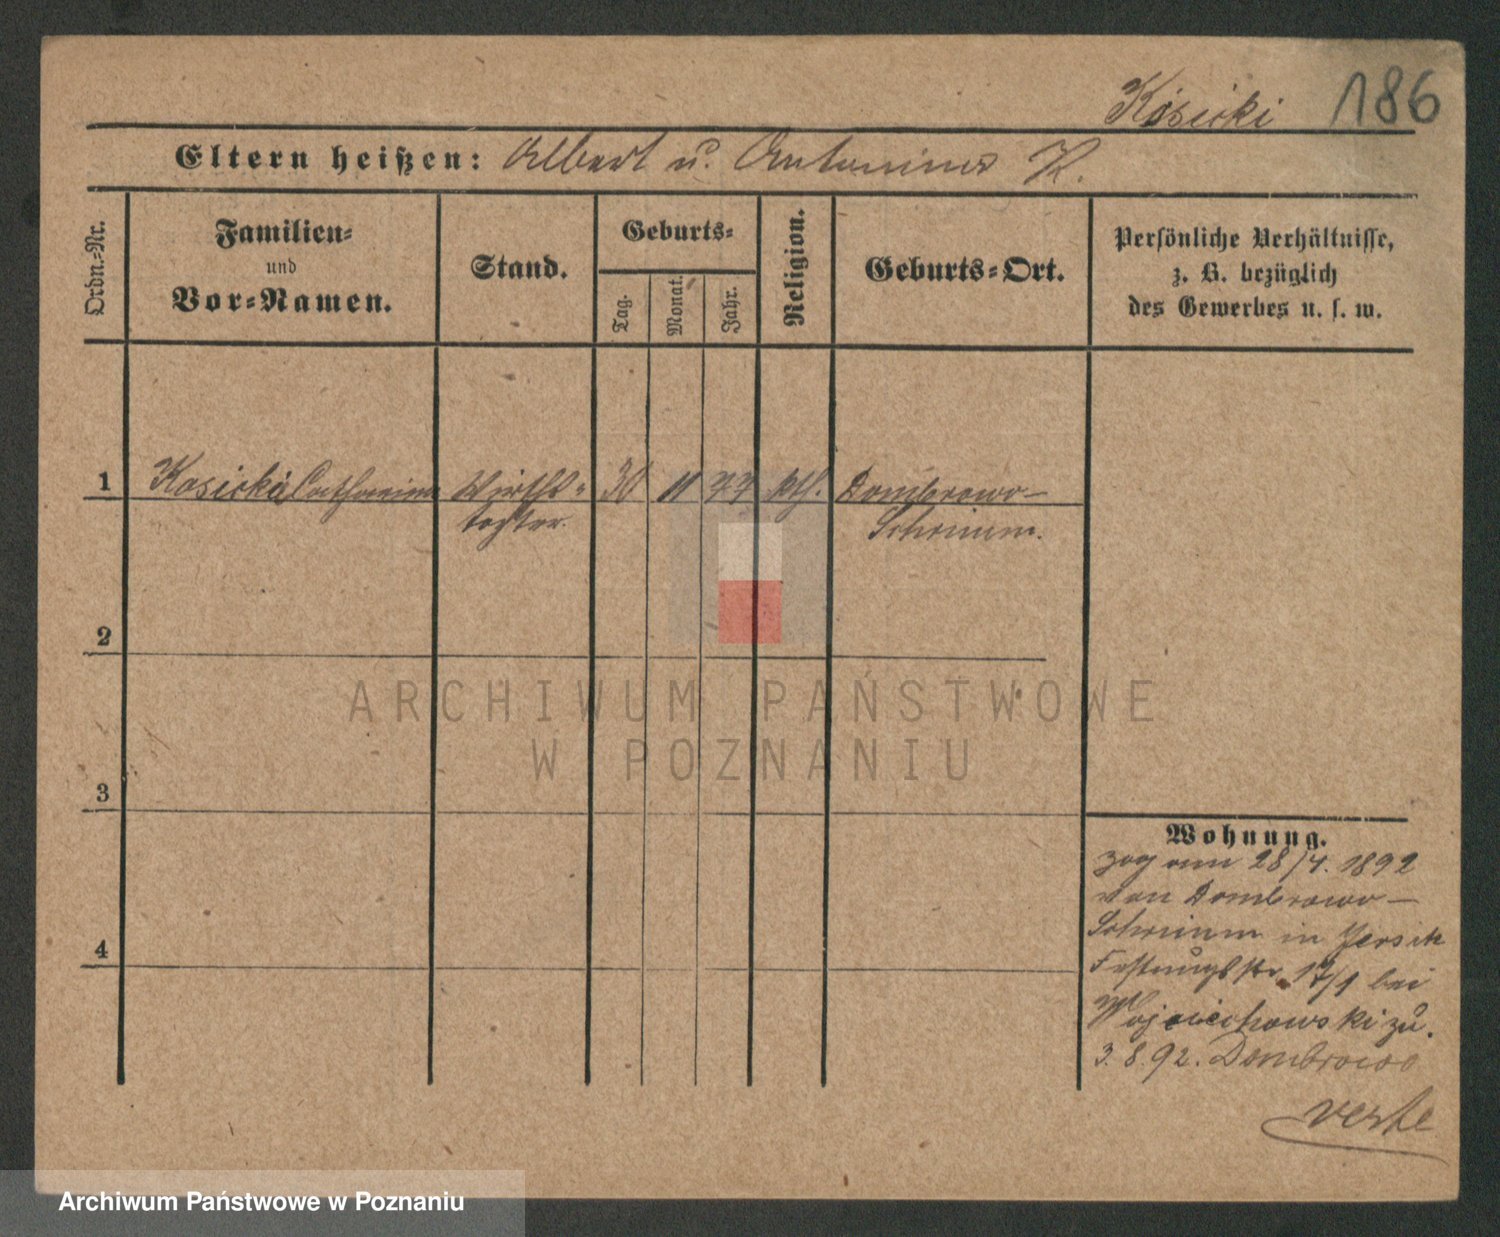 Kósicki 186
Eltern heißen: Albert u. Antonina K.
Ordn.-Nr.
Familien-
und
Vor-Namen.
Stand.
Geburts-
Tag.
Monat.
Jahr.
Religion.
Geburts-Ort.
Persönliche Verhältnisse,
z. B. bezüglich
des Gewerbes u. s. w.
1 Kosicka Catharina Wirths- 30 11 77 kth. Dombrowo-
tochter. Schrimm.
2
3
4
Wohnung.
zog am 28/4. 1892
von Dombrowo-
Schrimm in Jersitz
Festungsstr. 17/1 bei
Wojciechowski zu.
3.8.92. Dombrowo
verte
ARCHIWUM PAŃSTWOWE
W POZNANIU
Archiwum Państwowe w Poznaniu